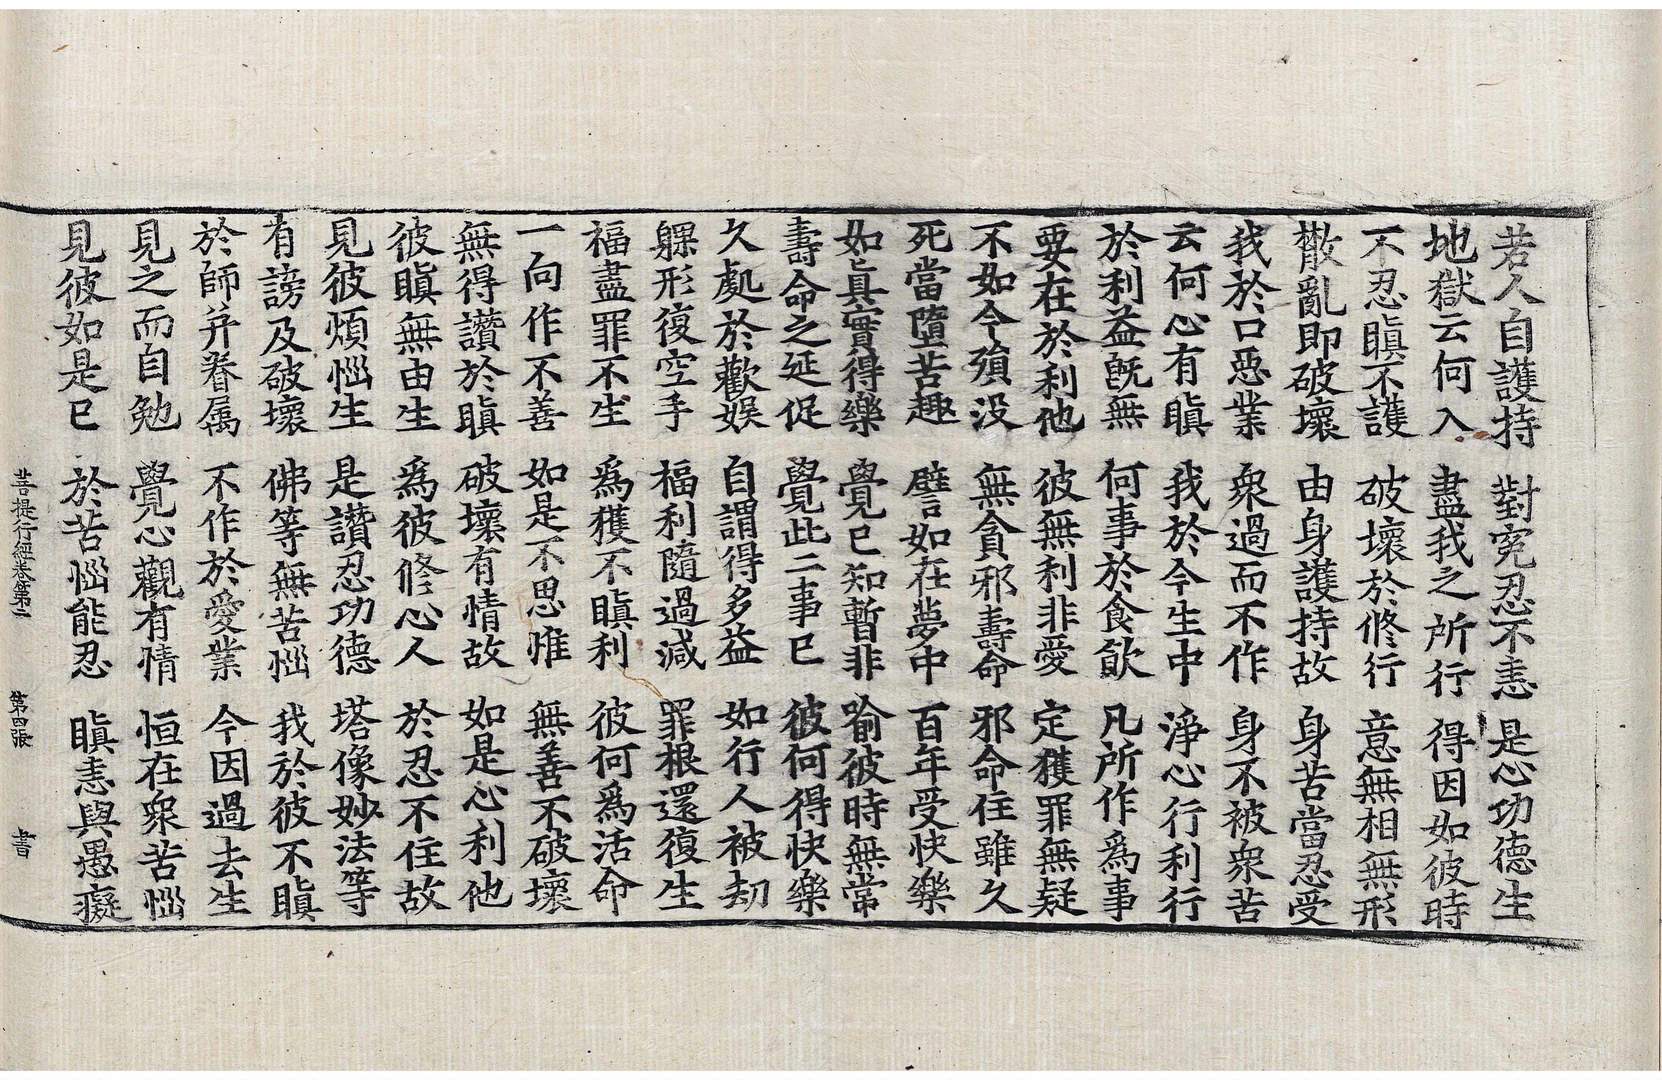 若人自護持 對冤忍不恚 是心功德生
地獄云何入 盡我之所行 得因如彼時
不忍瞋不護 破壞於修行 意無相無形
散亂即破壞 由身護持故 身苦當忍受
我於口惡業 衆過而不作 身不被衆苦
云何心有瞋 我於今生中 淨心行利行
於利益旣無 何事於食飮 凡所作爲事
要在於利他 彼無利非愛 定獲罪無疑
不如今殞没 無貪邪壽命 邪命住雖久
死當墮苦趣 譬如在夢中 百年受快樂
如眞實得樂 覺已知暫非 喻彼時無常
壽命之延促 覺此二事已 彼何得快樂
久處於歡娛 自謂得多益 如行人被劫
躶形復空手 福利隨過減 罪根還復生
福盡罪不生 爲獲不瞋利 彼何爲活命
一向作不善 如是不思惟 無善不破壞
無得讚於瞋 破壞有情故 如是心利他
彼瞋無由生 爲彼修心人 於忍不住故
見彼煩惱生 是讚忍功德 塔像妙法等
有謗及破壞 佛等無苦惱 我於彼不瞋
於師并眷属 不作於愛業 今因過去生
見之而自勉 覺心觀有情 恒在衆苦惱
見彼如是已 於苦惱能忍 瞋恚與愚癡
菩提行經卷第二 第四張 書